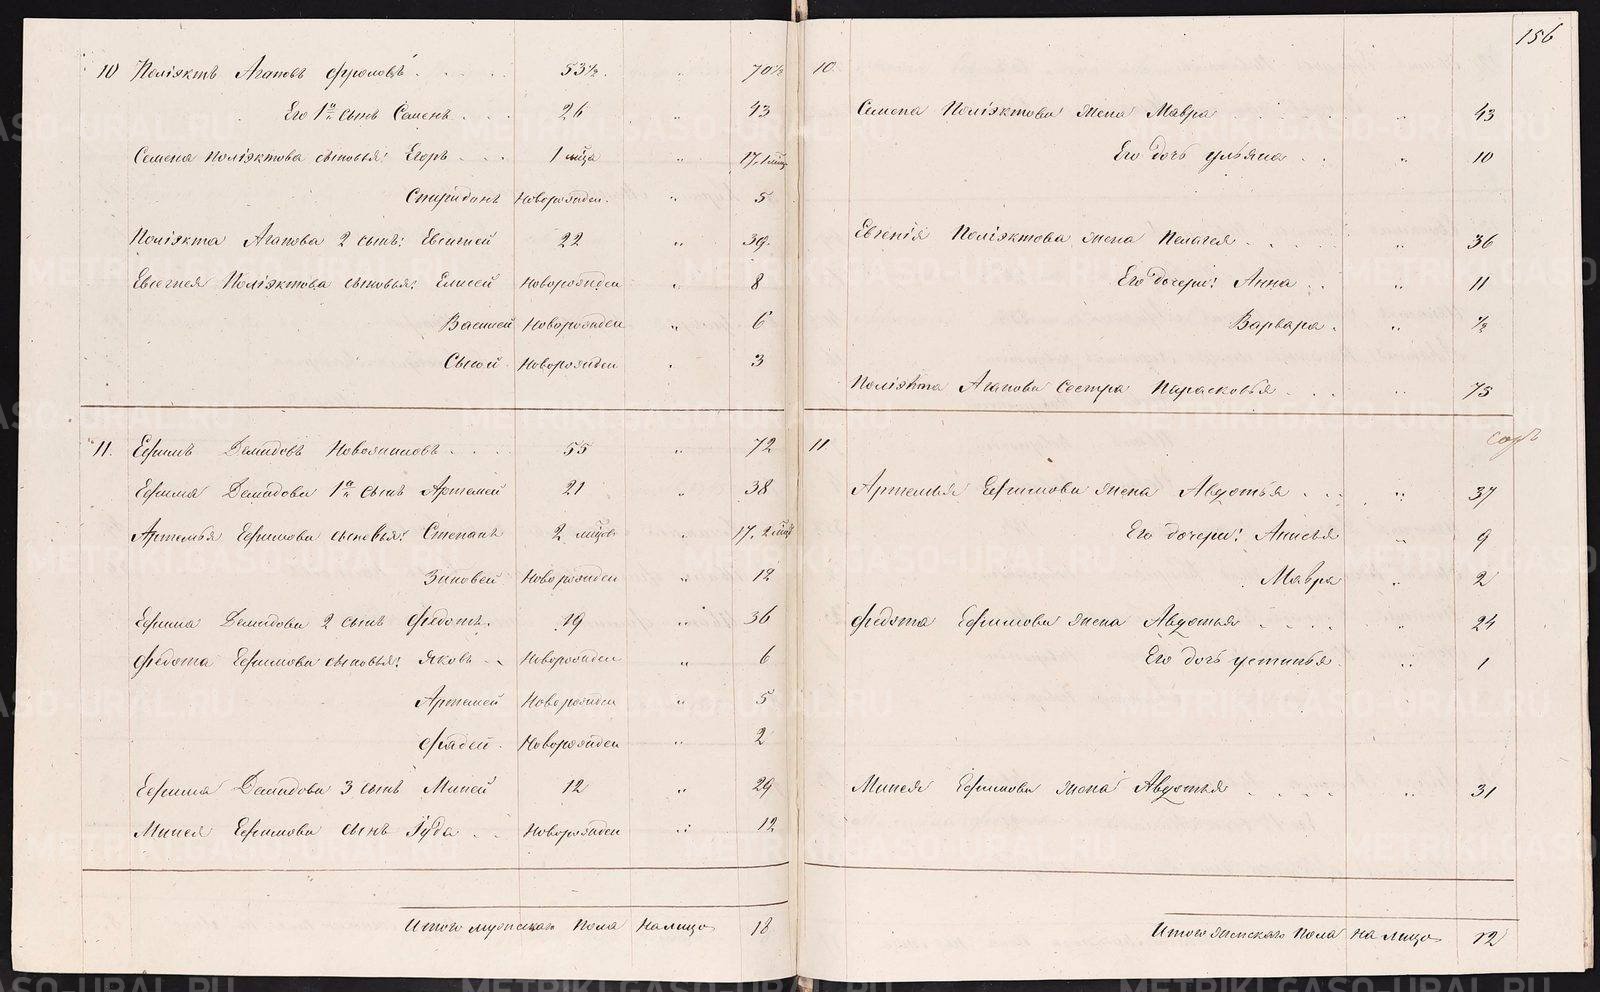 156
10 Поліэктъ Агаповъ Фроловъ 53½ „ 70½
Его 1й сынъ Семенъ 26 „ 43
Семена Поліэктова сыновья: Егоръ 1 мѣца „ 17. 1 мѣц
Спиридонъ Новорожден. „ 5
Поліэкта Агапова 2 сынъ: Евсигней 22 „ 39.
Евсегнея Поліэктова сыновья: Елисей Новорожден „ 8
Василей Новорожден „ 6
Сысой Новорожден „ 3
11. Ефимъ Демидовъ 55 „ 72
Ефима Демидова 1й сынъ Артемей 21 „ 38
Артемья Ефимова сыновья: Степанъ 2 мѣцовъ „ 17. 2 мѣц
Зиновей Новорожден „ 12
Ефима Демидова 2 сынъ Федотъ. 19 „ 36
Федота Ефимова сыновья: Яковъ Новорожден „ 6
Артемей Новорожден „ 5
Фадей Новорожден „ 2
Ефима Демидова 3 сынъ Миней 12 „ 29
Минея Ефимова сынъ Іуда Новорожден „ 12
Итого мужескаго пола на лицо 18
10
Семена Поліэктова жена Мавра „ 43
Его дочь Ульяна „ 10
Евгенія Поліэктова жена Пелагея „ 36
Его дочери: Анна „ 11
Варвара „ ½
Поліэкта Агапова сестра Парасковья „ 73
11
Артемья Ефимова жена Авдотья „ 37
Его дочери: Анисья „ 9
Мавра „ 2
Федота Ефимова жена Авдотья „ 24
Его дочь Устинья „ 1
Минея Ефимова жена Авдотья „ 31
Итого женскаго пола на лицо 12
METRIKI.GASO-URAL.RU